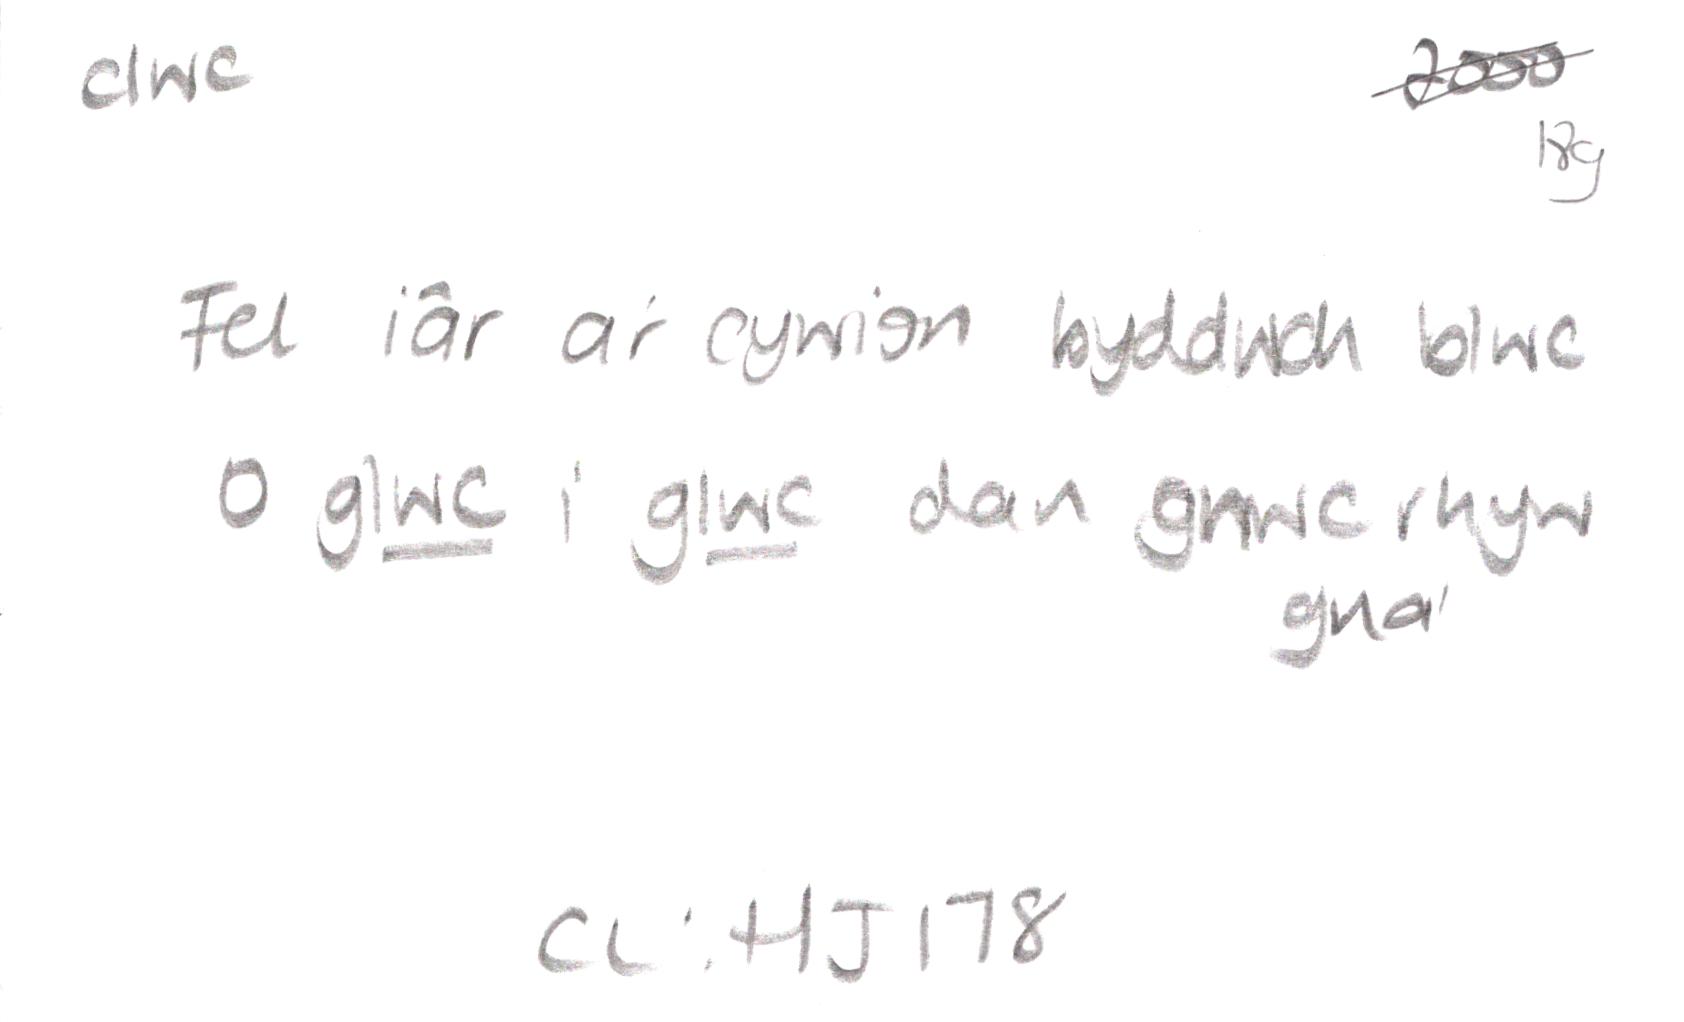 clwc
2000
18g
Fel iâr a'i cywion byddwch blwc
O glwc i glwc dan gnwc rhyw
gna'
CL:HJ178